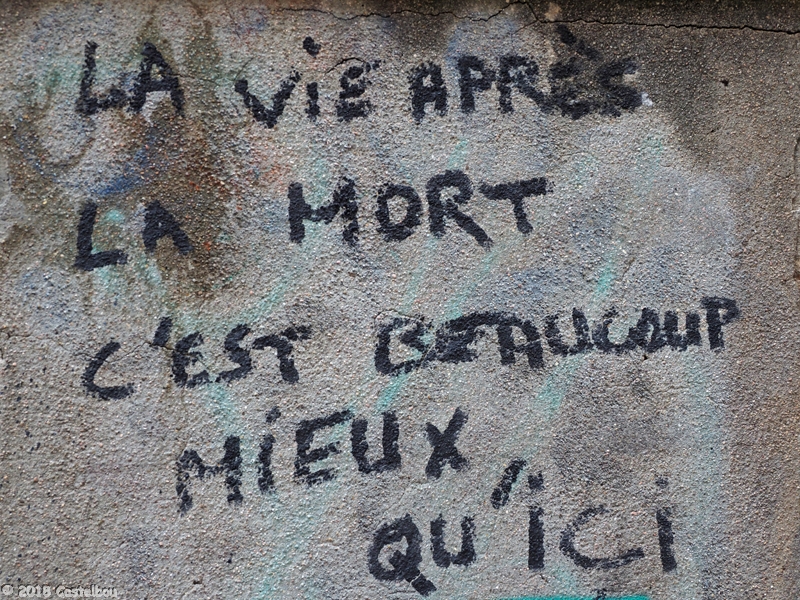 LA ViE APRÈS
LA MORT
C'EST BEAUCOUP
MiEUX
QU'iCi
© 2018 Castelbou